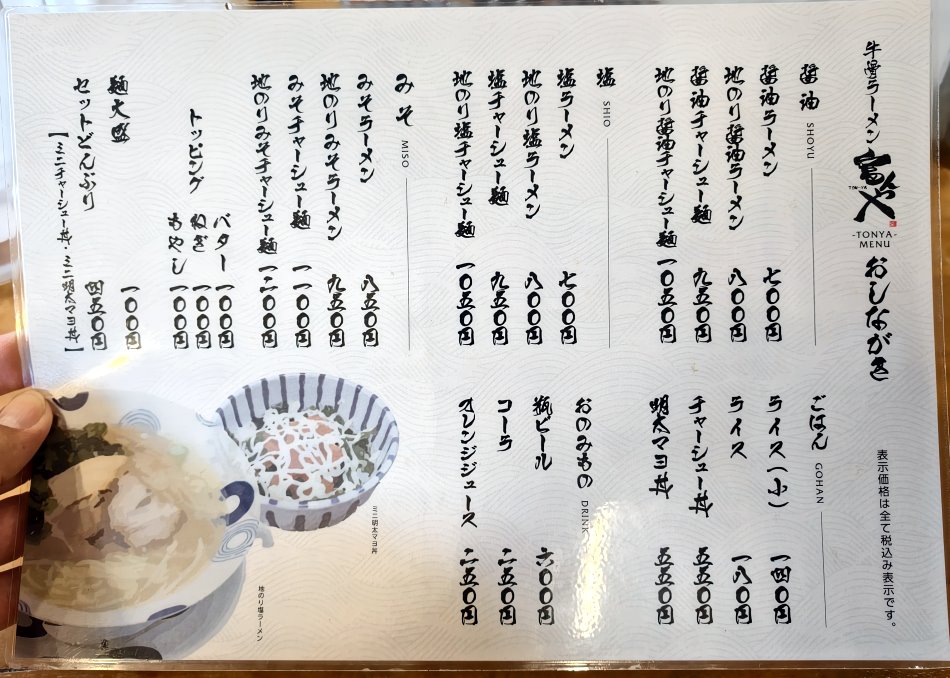 牛骨ラーメン
富んや
TON-YA
-TONYA-
MENU
おしながき
表示価格は全て税込み表示です。
醤油 SHOYU
醤油ラーメン 七〇〇円
地のり醤油ラーメン 八〇〇円
醤油チャーシュー麺 九五〇円
地のり醤油チャーシュー麺 一〇五〇円
塩 SHIO
塩ラーメン 七〇〇円
地のり塩ラーメン 八〇〇円
塩チャーシュー麺 九五〇円
地のり塩チャーシュー麺 一〇五〇円
みそ MISO
みそラーメン 八五〇円
地のりみそラーメン 九五〇円
みそチャーシュー麺 一一〇〇円
地のりみそチャーシュー麺 一二〇〇円
トッピング
バター 一〇〇円
ねぎ 一〇〇円
もやし 一〇〇円
麺大盛 一〇〇円
セットどんぶり 四五〇円
【ミニチャーシュー丼・ミニ明太マヨ丼】
ごはん GOHAN
ライス(小) 一四〇円
ライス 一八〇円
チャーシュー丼 五五〇円
明太マヨ丼 五五〇円
おのみもの DRINK
瓶ビール 六〇〇円
コーラ 二五〇円
オレンジジュース 二五〇円
ミニ明太マヨ丼
地のり塩ラーメン